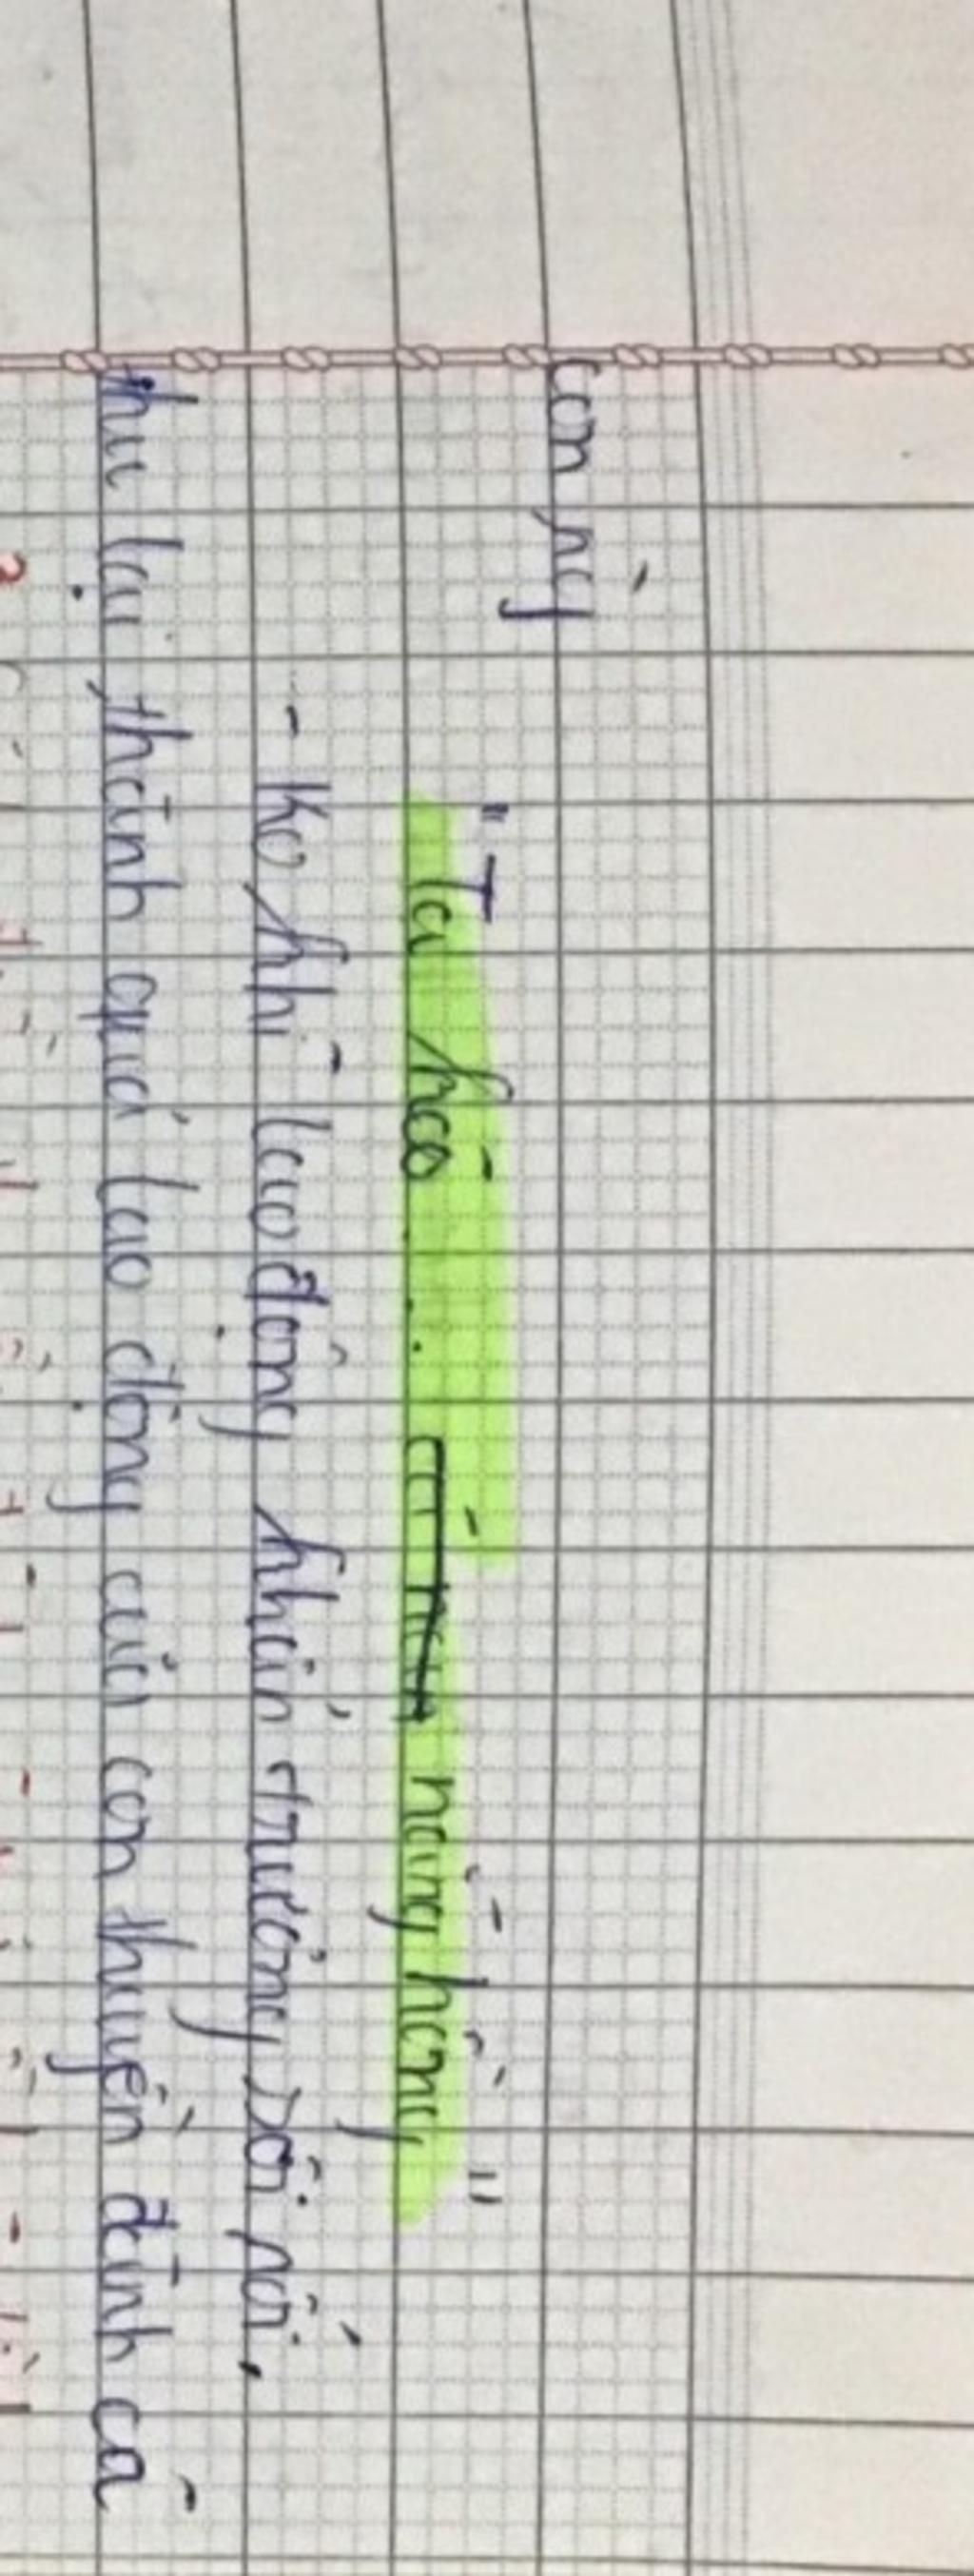 còn nỳ
"Ta hát ... nắng hồng"
- Ko khí lao động khẩn trương, sôi nổi.
thu lại thành quả lao động của con thuyền đánh cá